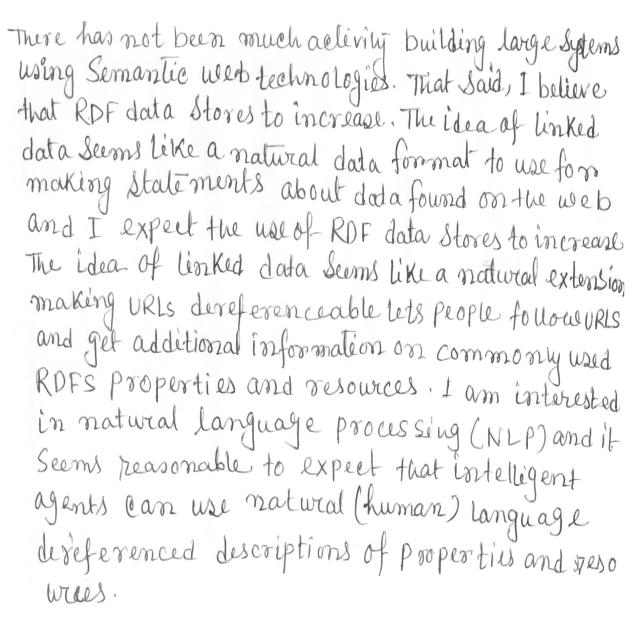 There has not been much activity building large Systems
using Semantic web technologies. That Said, I believe
that RDF data Stores to increase. The idea of linked
data Seems like a natural data format to use for
making Statements about data found on the web
and I expect the use of RDF data Stores to increase
The idea of linked data Seems like a natural extension
making URLs dereferenceable lets people follow URLS
and get additional information on commonly used
RDFS Properties and resources. I am interested
in natural language processing (NLP) and it
Seems reasonable to expect that intelligent
agents can use natural (human) language
dereferenced descriptions of Properties and reso
urces.